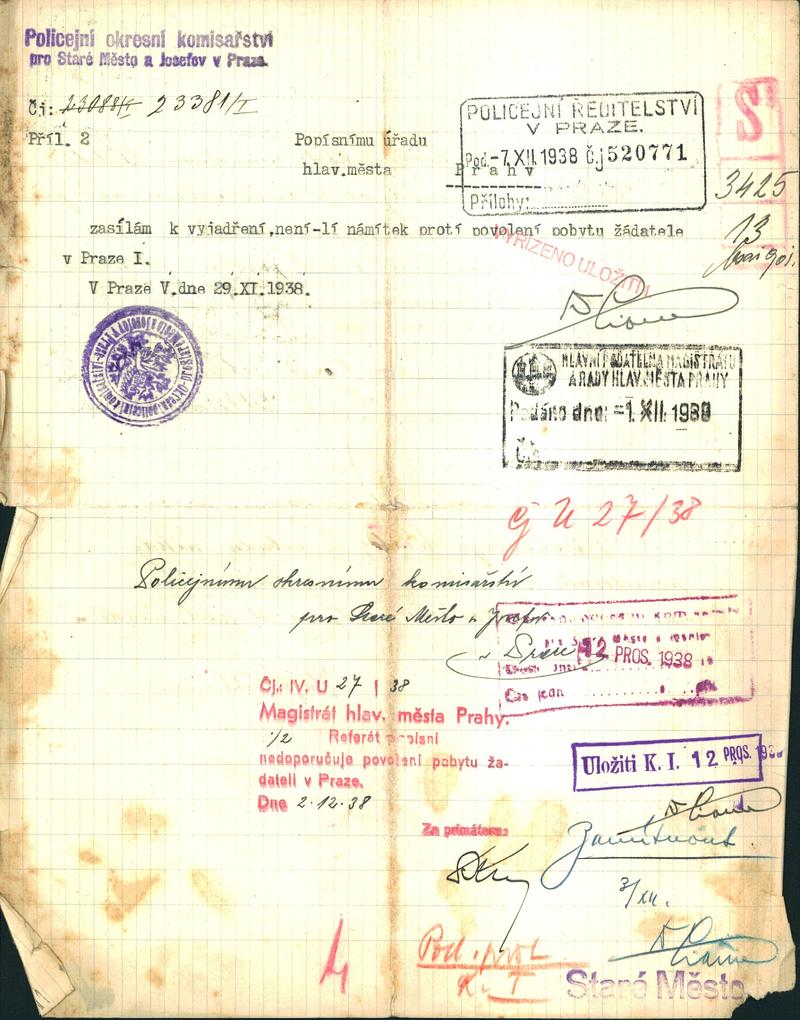 Policejní okresní komisařství
pro Staré Město a Josefov v Praze.
Čj: 23088/I 23381/I
Příl. 2
Popisnímu úřadu
hlav.města
Prahy
POLICEJNÍ ŘEDITELSTVÍ
V PRAZE.
Pod. -7.XII.1938 Č.j 520771
Přílohy:
S
3425
13
zasílám k vyjadření,není-lí námitek protí povolení pobytu žádatele
v Praze I.
VYŘÍZENO ULOŽITI!
V Praze V.dne 29.XI.1938.
HLAVNÍ PODATELNA MAGISTRÁTU
A RADY HLAV. MĚSTA PRAHY
Podáno dne: -1. XII. 1938
Čj.
čj U 27/38
Policejnímu okresnímu komisařství
pro Staré Město a Josefov
v Praze
12 PROS. 1938
Čj.: IV. U 27 | 38
Magistrát hlav. města Prahy.
1/2 Referát popisní
nedoporučuje povolení pobytu ža-
dateli v Praze.
Dne 2.12.38
Uložiti K. I. 12 PROS. 1938
Za primátora:
Zamítnout.
3/XII.
Pod. prot
K. I
Staré Město.